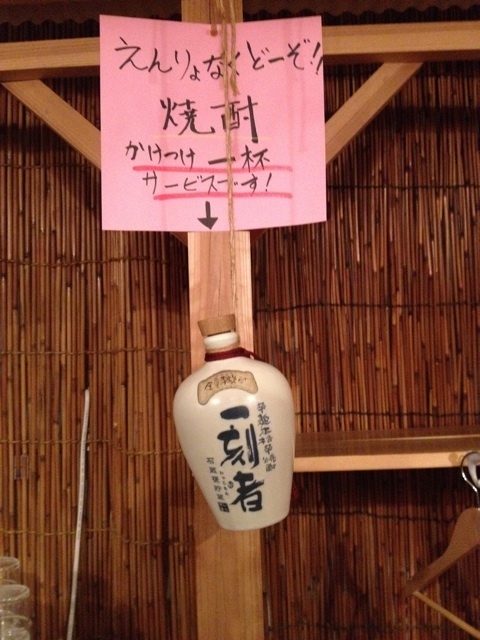 えんりょなくどーぞ!!
焼酎
かけつけ一杯
サービスです!
一刻者
石蔵甕貯蔵